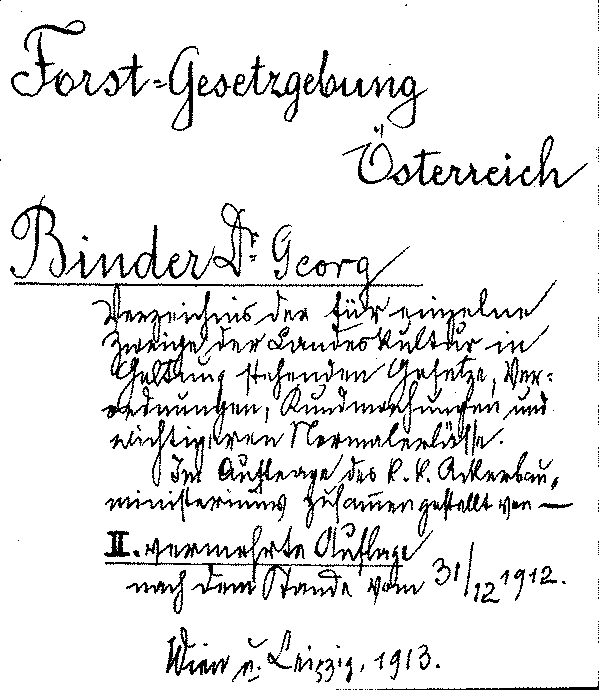 Forst-Gesetzgebung
Österreich
Binder Dr. Georg
Verzeichnis der für einzelne
Zweige der Landeskultur in
Geltung stehenden Gesetze, Ver-
ordnungen, Kundmachungen und
wichtigeren Normalerlässe.
Im Auftrage des k. k. Ackerbau-
ministeriums zusammengestellt von —
II. vermehrte Auflage
nach dem Stande vom 31/12 1912.
Wien u. Leipzig, 1913.